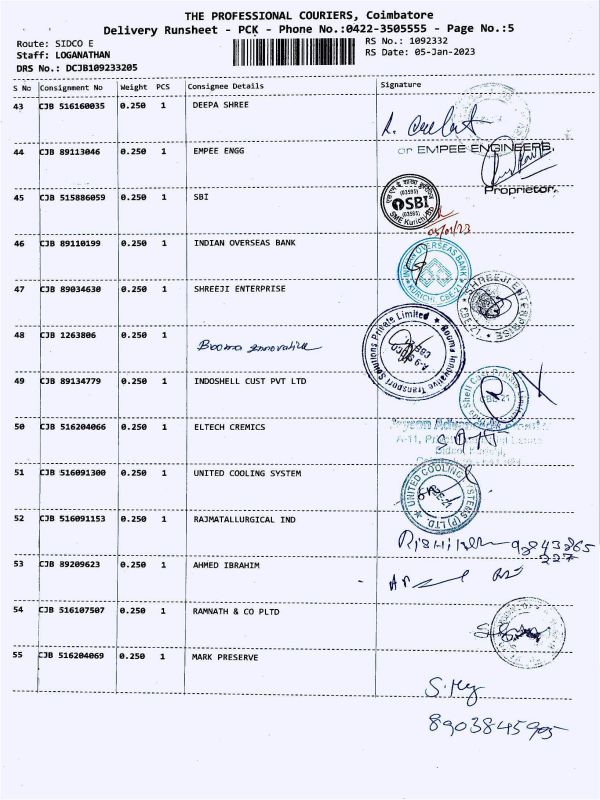 THE PROFESSIONAL COURIERS, Coimbatore
Delivery Runsheet - PCK - Phone No.:0422-3505555 - Page No.:5
Route: SIDCO E
RS No.: 1092332
Staff: LOGANATHAN
RS Date: 05-Jan-2023
DRS No.: DCJB109233205
S No Consignment No Weight PCS Consignee Details Signature
43 CJB 516160035 0.250 1 DEEPA SHREE
44 CJB 89113046 0.250 1 EMPEE ENGG
or EMPEE ENGINEERS,
Proprietor,
45 CJB 515886059 0.250 1 SBI
(03595)
SBI
(03595)
SME Kurichi
05/01/23
46 CJB 89110199 0.250 1 INDIAN OVERSEAS BANK
INDIAN OVERSEAS BANK
KURICHI, CBE-21
47 CJB 89034630 0.250 1 SHREEJI ENTERPRISE
SHREEJI ENTERPRISE
CBE-21.
48 CJB 1263806 0.250 1 Booma Innovative
Booma Innovative Transport Solutions Private Limited
49 CJB 89134779 0.250 1 INDOSHELL CUST PVT LTD
50 CJB 516204066 0.250 1 ELTECH CREMICS
A-11,
51 CJB 516091300 0.250 1 UNITED COOLING SYSTEM
UNITED COOLING SYSTEMS (P) LTD.
52 CJB 516091153 0.250 1 RAJMATALLURGICAL IND
53 CJB 89209623 0.250 1 AHMED IBRAHIM
54 CJB 516107507 0.250 1 RAMNATH & CO PLTD
55 CJB 516204069 0.250 1 MARK PRESERVE
8903845905